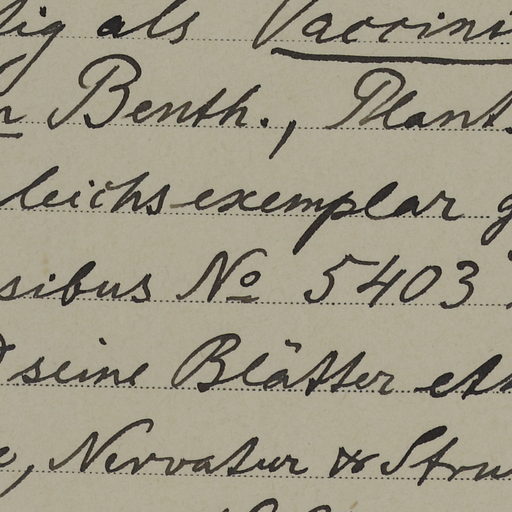 tig als Vaccini
n Benth., Plant
leichsexemplar g
sibus No 5403
seine Blätter et
e, Nervatur & Stru